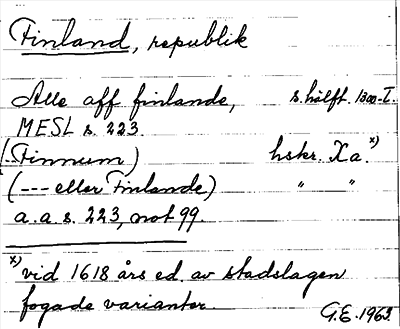 Finland, republik
Alle aff finlande, s. hälft. 1300-T.
MESL s. 223.
(Finnum) hskr. Xa. x)
(--- eller Finlande) " "
a.a.s. 223, not 99.
x) vid 1618 års ed. av stadslagen
fogade varianter.
G.E. 1963